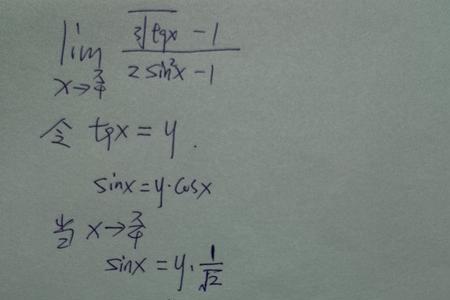 lim x→π/4 (∛tgx - 1)/(2sin²x - 1)
令 tgx = y.
sinx = y·cosx
当 x→π/4
sinx = y·1/√2